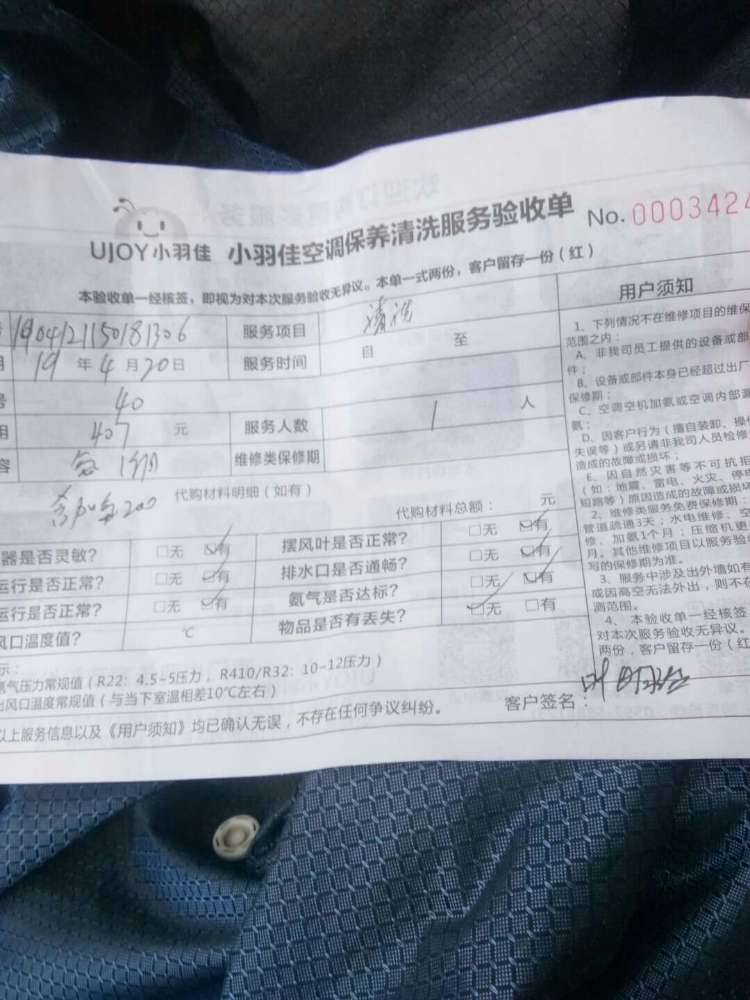 UJOY小羽佳 小羽佳空调保养清洗服务验收单 No. 0003424
本验收单一经核签，即视为对本次服务验收无异议。本单一式两份，客户留存一份（红）
190421150181306 服务项目 清洗
19 年 4 月 20 日 服务时间 自 至
号 40
用 407 元 服务人数 1 人
容 维修类保修期
200 代购材料明细（如有）
代购材料总额： 元
器是否灵敏？ □无 □有 摆风叶是否正常？ □无 □有
运行是否正常？ □无 □有 排水口是否通畅？ □无 □有
运行是否正常？ □无 □有 氨气是否达标？ □无 □有
风口温度值？ ℃ 物品是否有丢失？ □无 □有
示：
氨气压力常规值（R22：4.5-5压力，R410/R32：10-12压力）
出风口温度常规值（与当下室温相差10℃左右）
以上服务信息以及《用户须知》均已确认无误，不存在任何争议纠纷。 客户签名：
用户须知
1、下列情况不在维修项目的维保
范围之内：
A、非我司员工提供的设备或部
件；
B、设备或部件本身已经超过出厂
保修期；
C、空调空机加氨或空调内部漏
氨；
D、因客户行为（擅自装卸、操作
失误等）或另请非我司人员检修
造成的故障或损坏；
E、因自然灾害等不可抗拒
（如：地震、雷电、火灾、停电
短路等）原因造成的故障或损坏
2、维修类服务免费保修期：
管道疏通3天；水电维修、空
修、加氨1个月；压缩机更
月。其他维修项目以服务验
写的保修期为准。
3、服务中涉及出外墙如有
或因高空无法外出，则不在
测范围。
4、本验收单一经核签
对本次服务验收无异议。
两份，客户留存一份（红